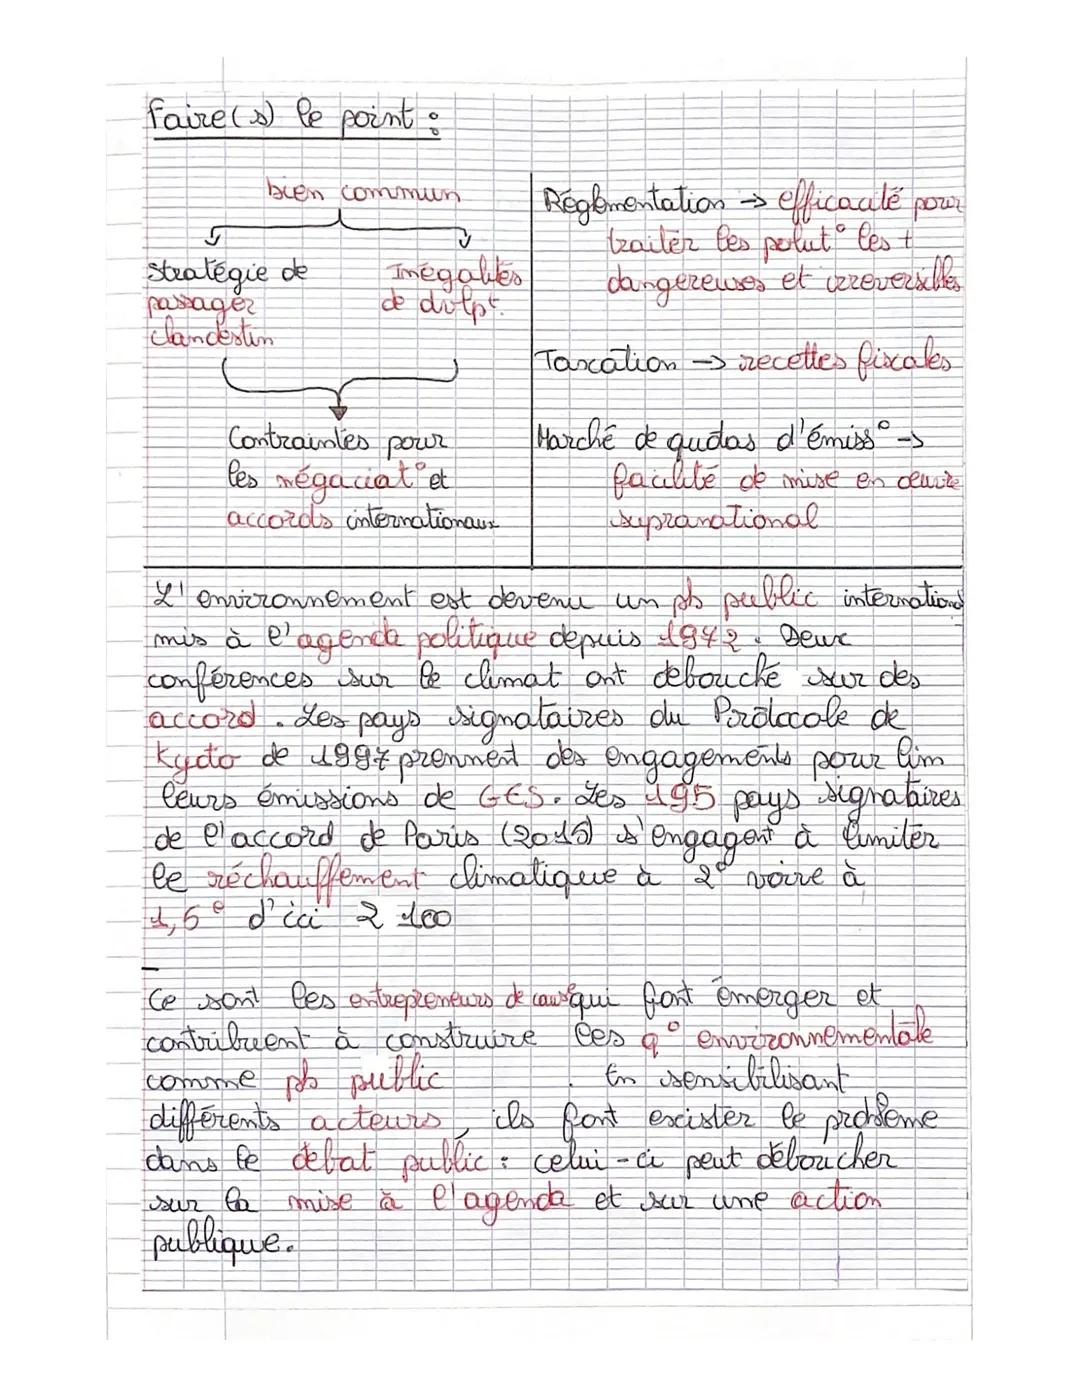 Faire(s) le point :
bien commun
stratégie de
passager
clandestin
Inégalités
de dvlpt.
Contraintes pour
les négociat° et
accords internationaux
Réglementation → efficacité pour
traiter les pollut° les +
dangereuses et irreversibles
Taxation → recettes fiscales
Marché de quotas d'émiss° →
facilité de mise en oeuvre
supranational
L'environnement est devenu un pb public international
mis à l'agenda politique depuis 1972. Deux
conférences sur le climat ont debouché sur des
accord. Les pays signataires du Protocole de
Kyoto de 1997 prennent des engagements pour lim
leurs émissions de GES. Les 195 pays signataires
de l'accord de Paris (2015) s'engagent à limiter
le réchauffement climatique à 2° voire à
1,5° d'ici 2 100
Ce sont les entrepreneurs de cause qui font émerger et
contribuent à construire les q° environnementale
comme pb public . En sensibilisant
différents acteurs, ils font exister le problème
dans le débat public : celui-ci peut déboucher
sur la mise à l'agenda et sur une action
publique.